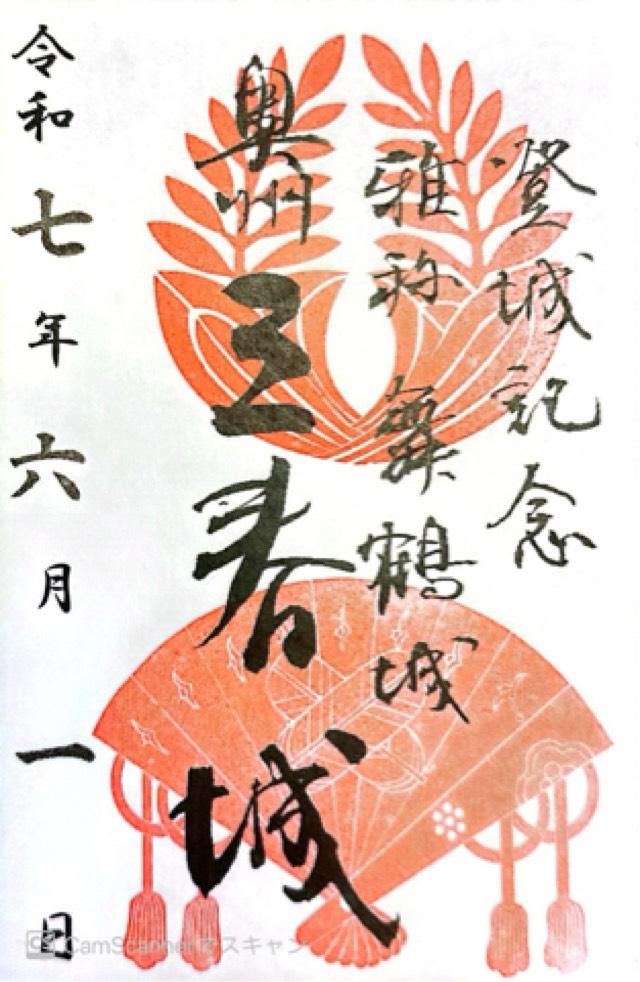 登城記念
雅称 舞鶴城
奥州三春城
令和七年六月一日
CamScannerでスキャン